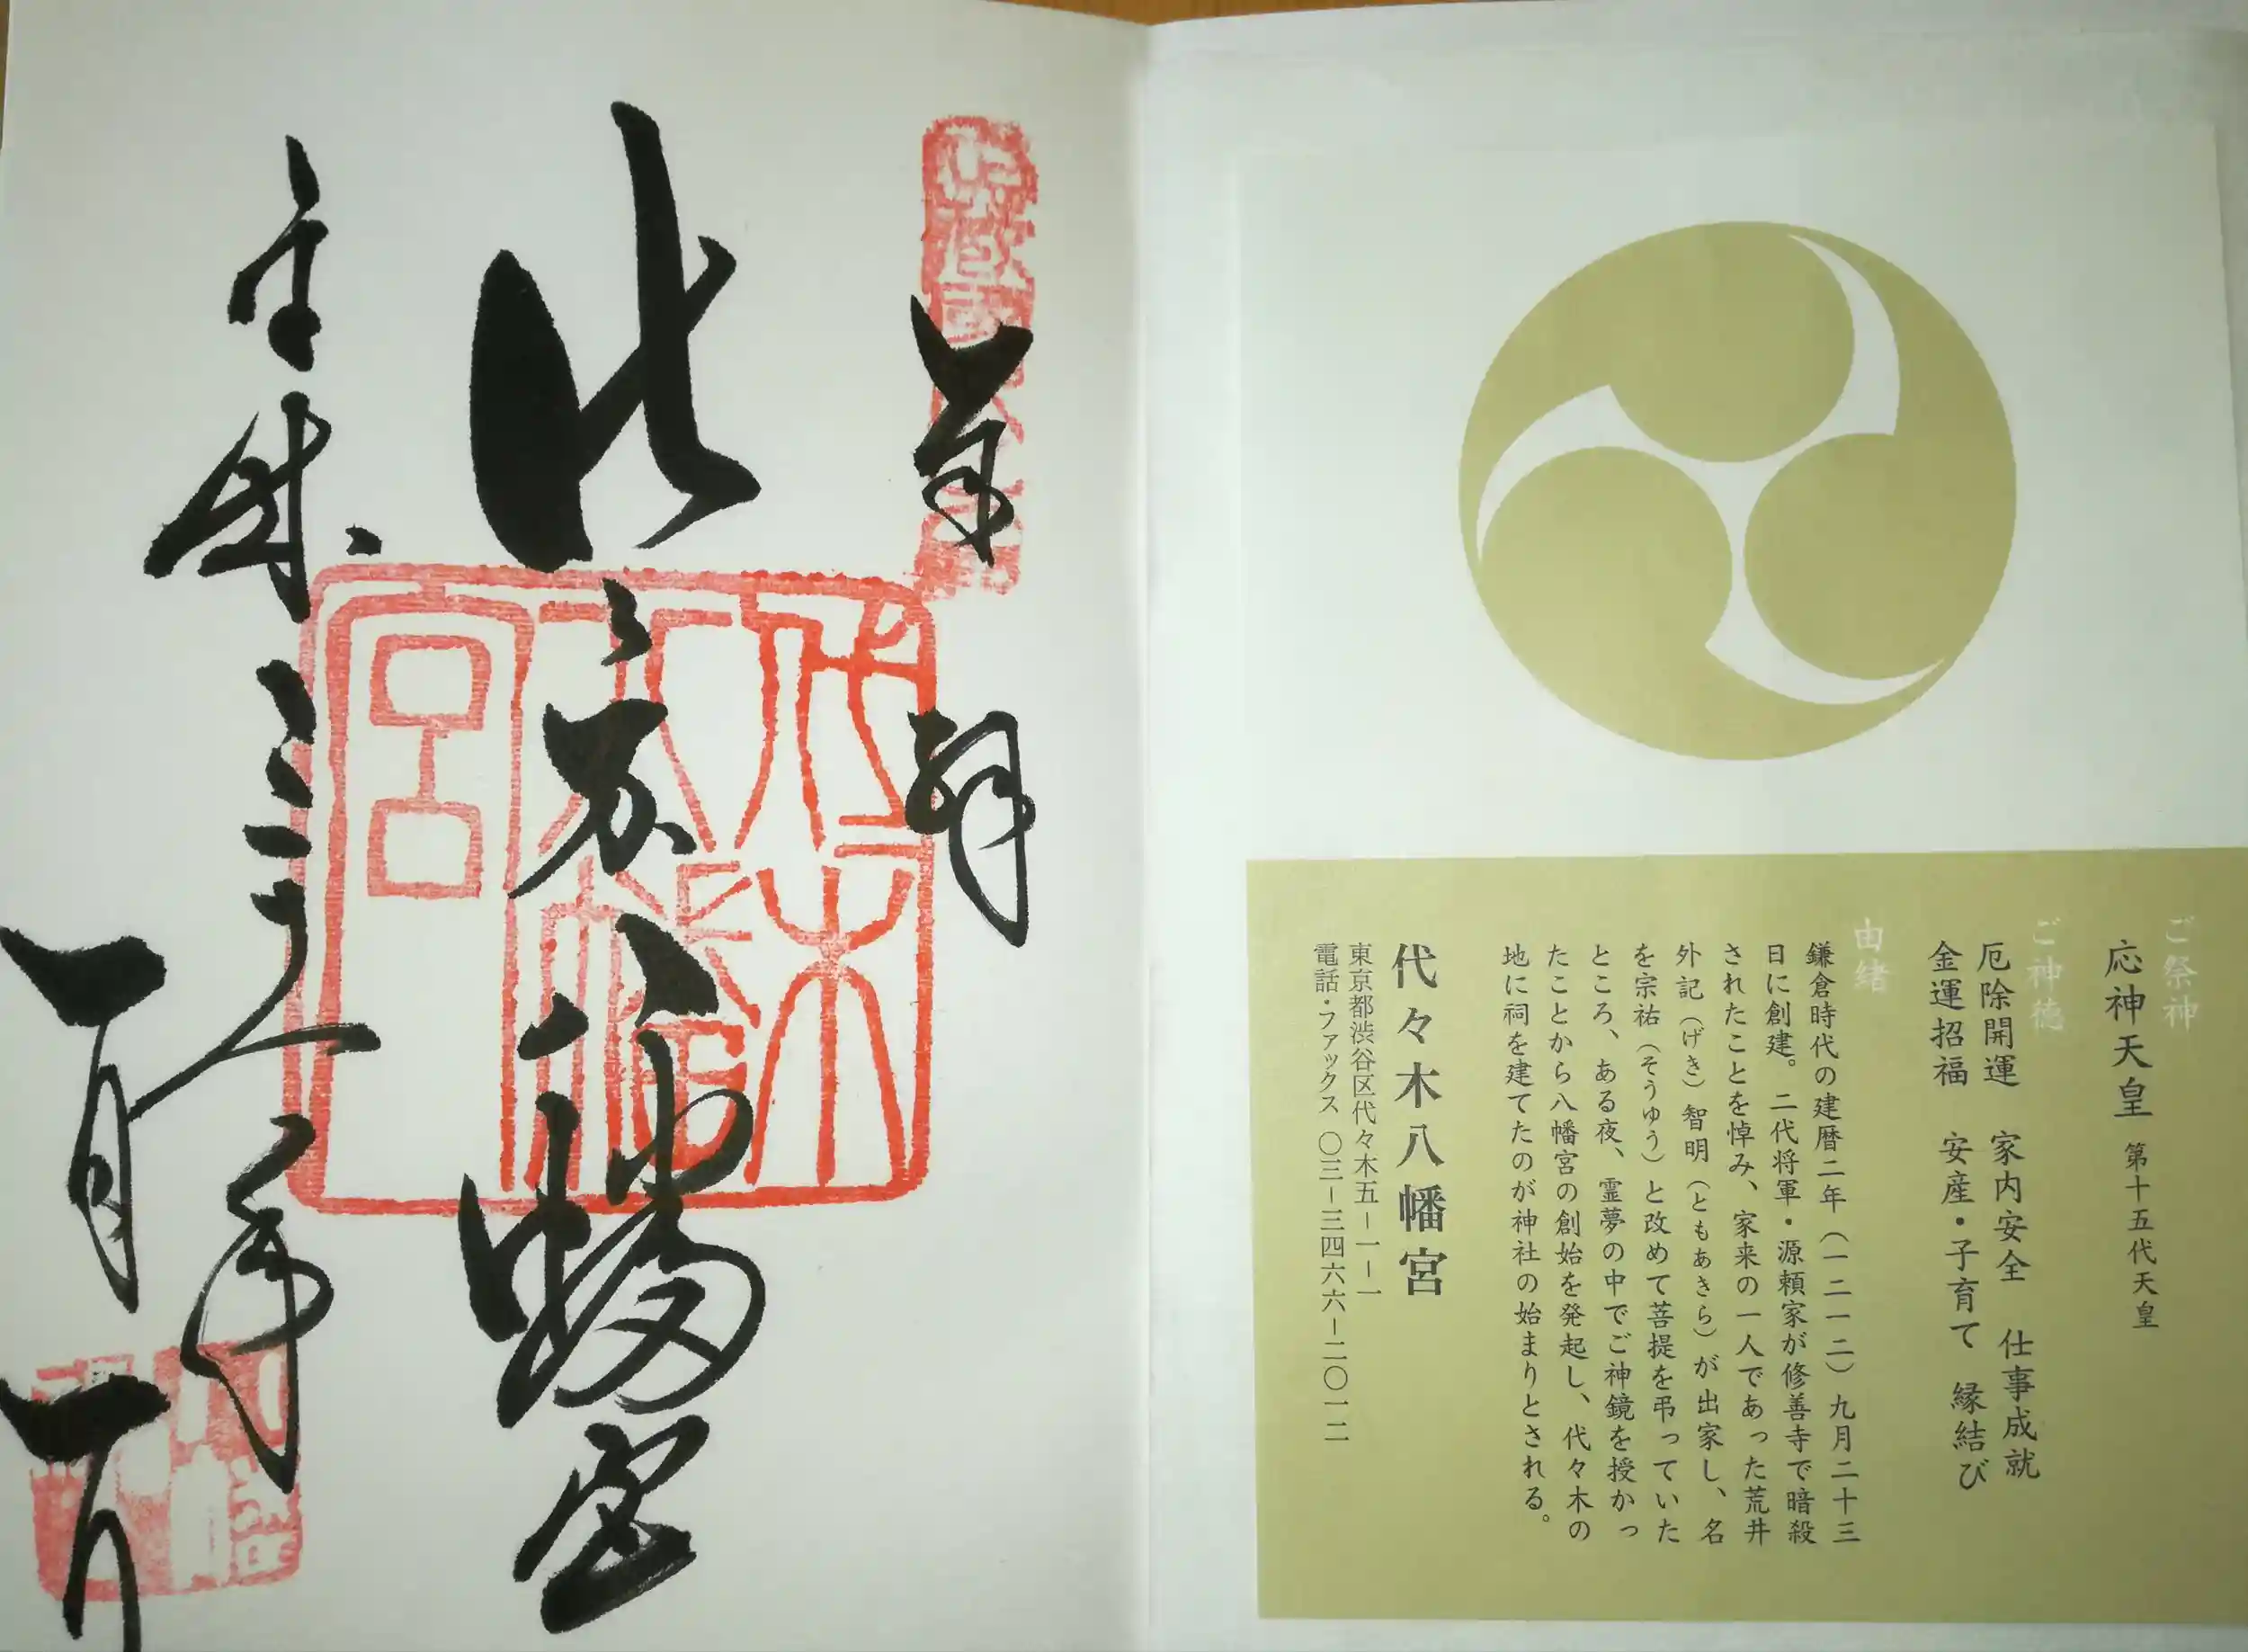 ご祭神
応神天皇 第十五代天皇
ご神徳
厄除開運 家内安全 仕事成就
金運招福 安産・子育て 縁結び
由緒
鎌倉時代の建暦二年（一二一二）九月二十三
日に創建。二代将軍・源頼家が修善寺で暗殺
されたことを悼み、家来の一人であった荒井
外記（げき）智明（ともあきら）が出家し、名
を宗祐（そうゆう）と改めて菩提を弔っていた
ところ、ある夜、霊夢の中でご神鏡を授かっ
たことから八幡宮の創始を発起し、代々木の
地に祠を建てたのが神社の始まりとされる。
代々木八幡宮
東京都渋谷区代々木五－一－一
電話・ファックス 〇三－三四六六－二〇一二
奉拝
代々木八幡宮
代々木八幡宮
平成三十一年
一月一日